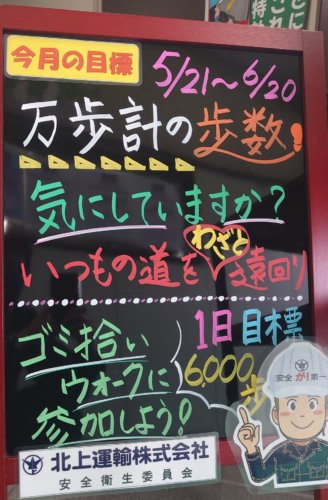 今月の目標
5/21～6/20
万歩計の歩数!
気にしていますか?
いつもの道をわざと遠回り
ゴミ拾い
ウォークに
参加しよう!
1日目標
6,000歩
安全第一
北上運輸株式会社
安全衛生委員会